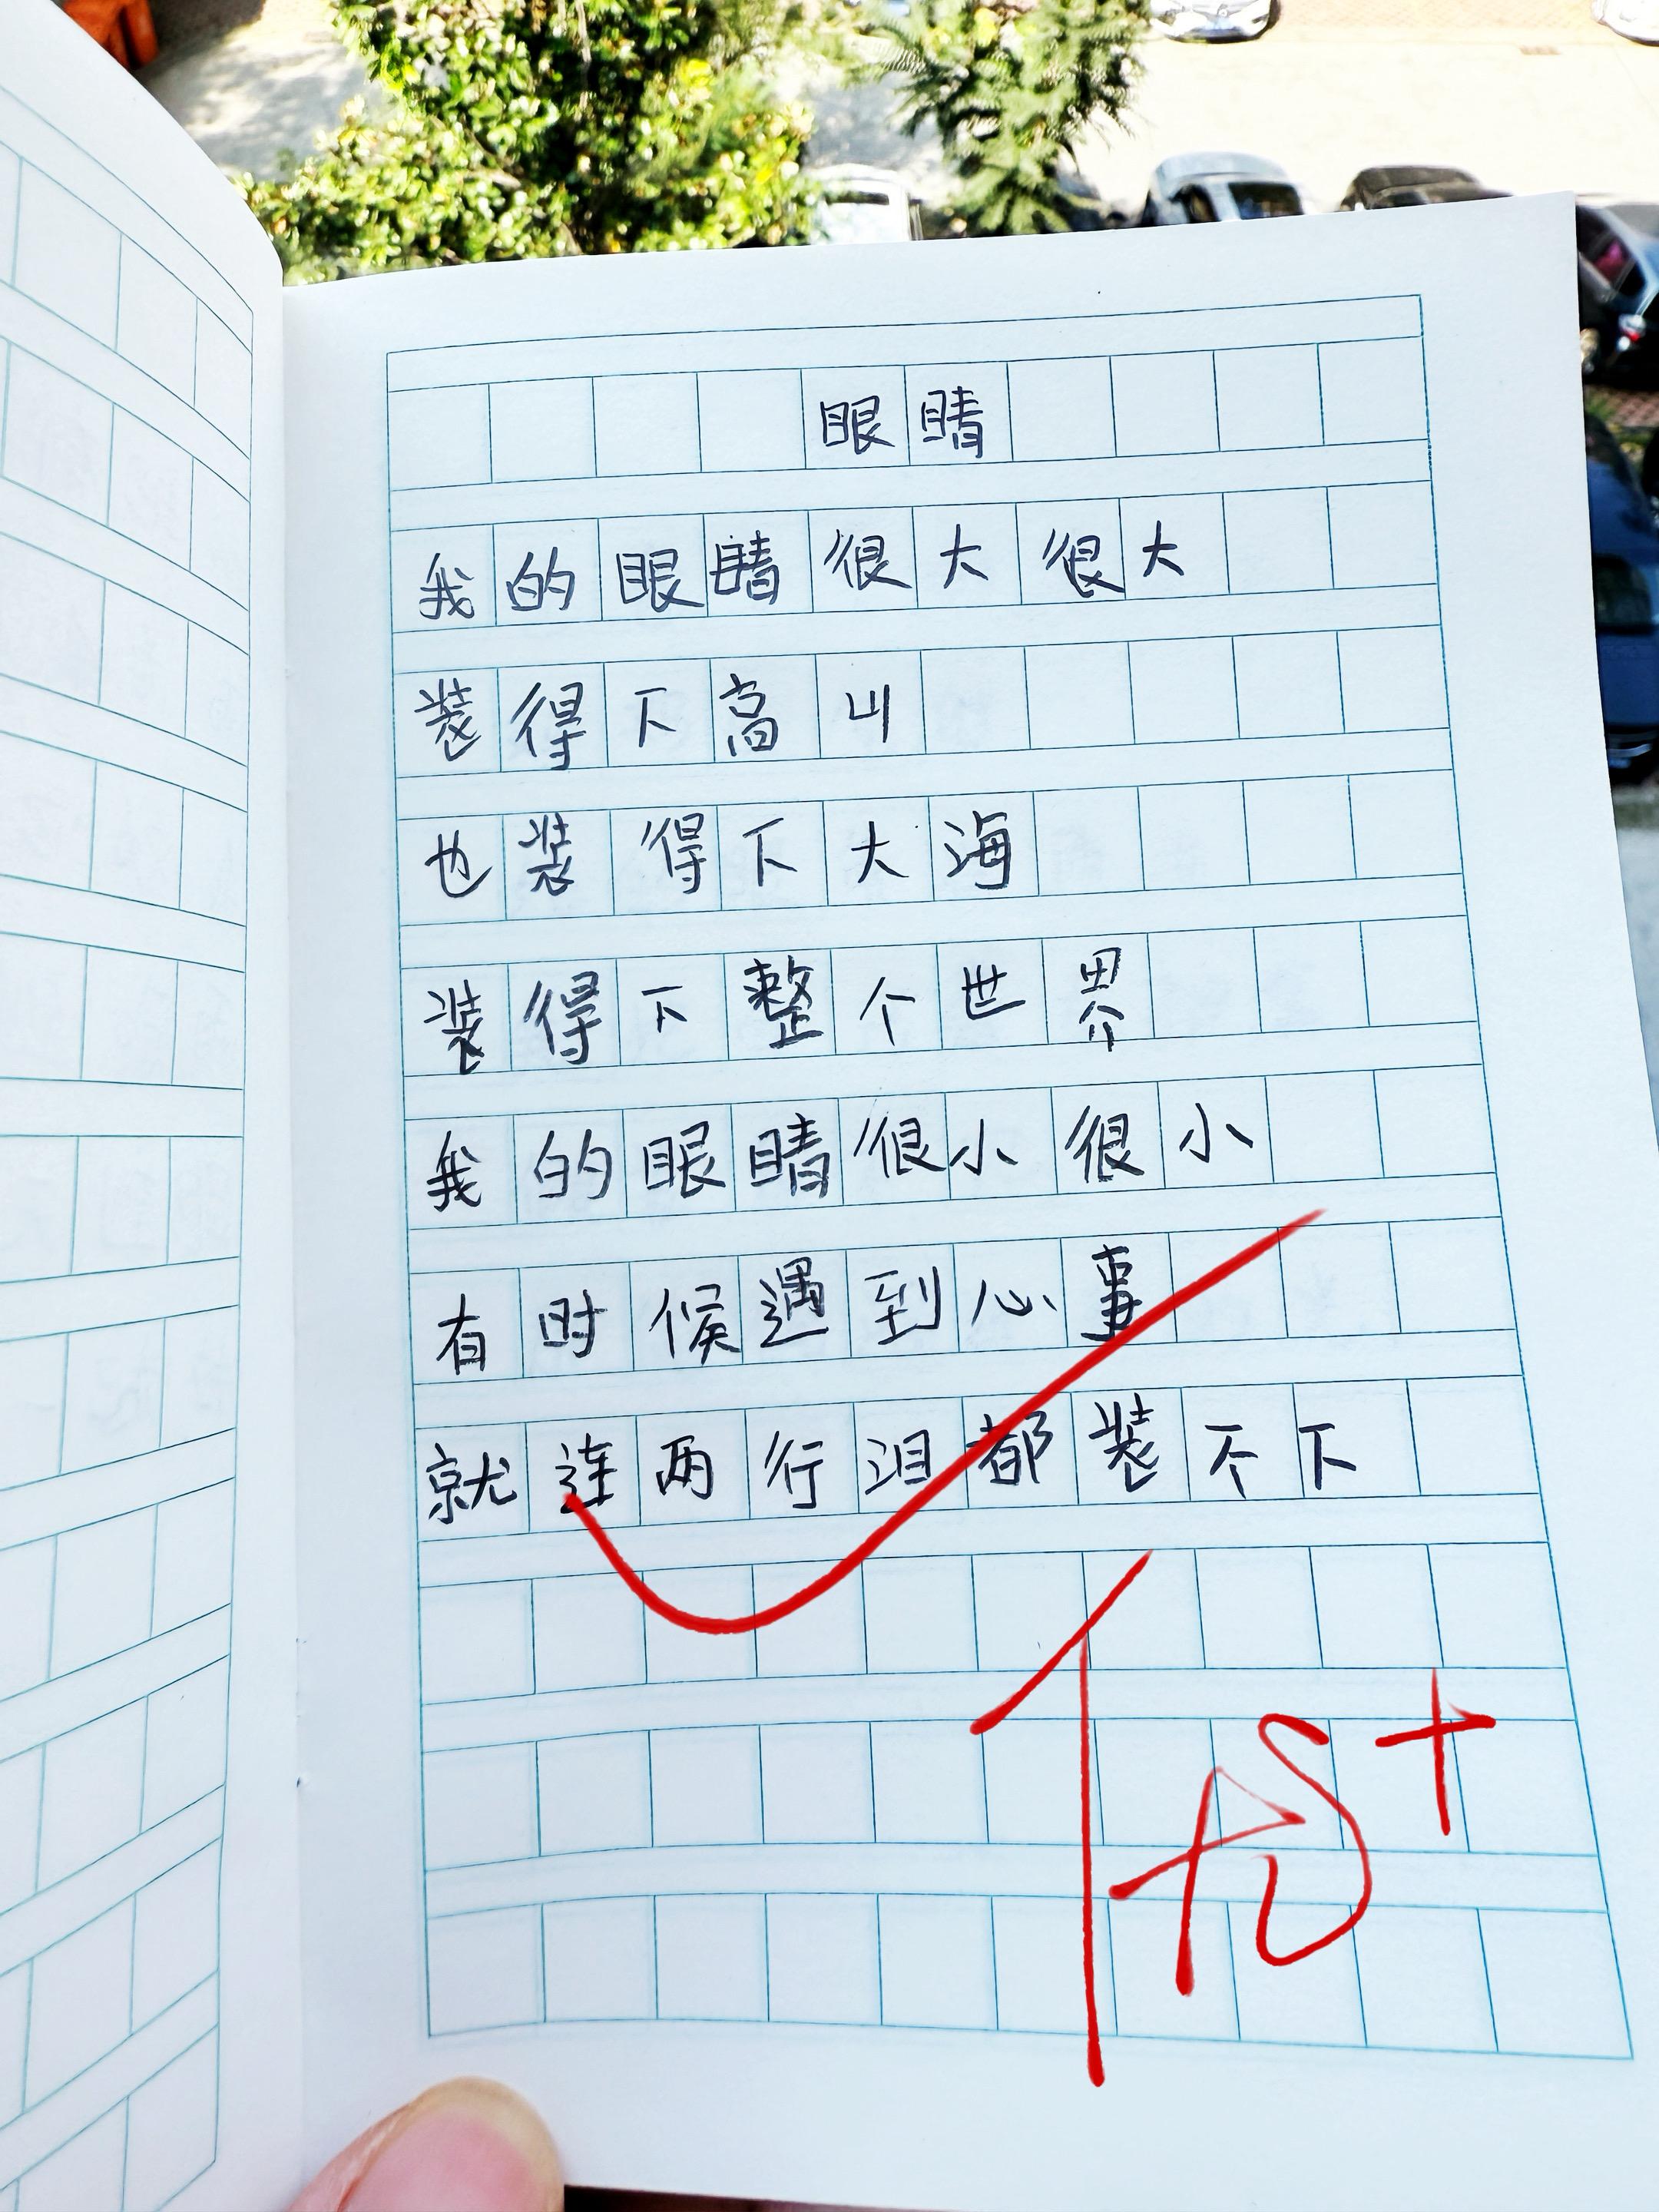 眼睛
我的眼睛很大很大
装得下高山
也装得下大海
装得下整个世界
我的眼睛很小很小
有时候遇到心事
就连两行泪都装不下